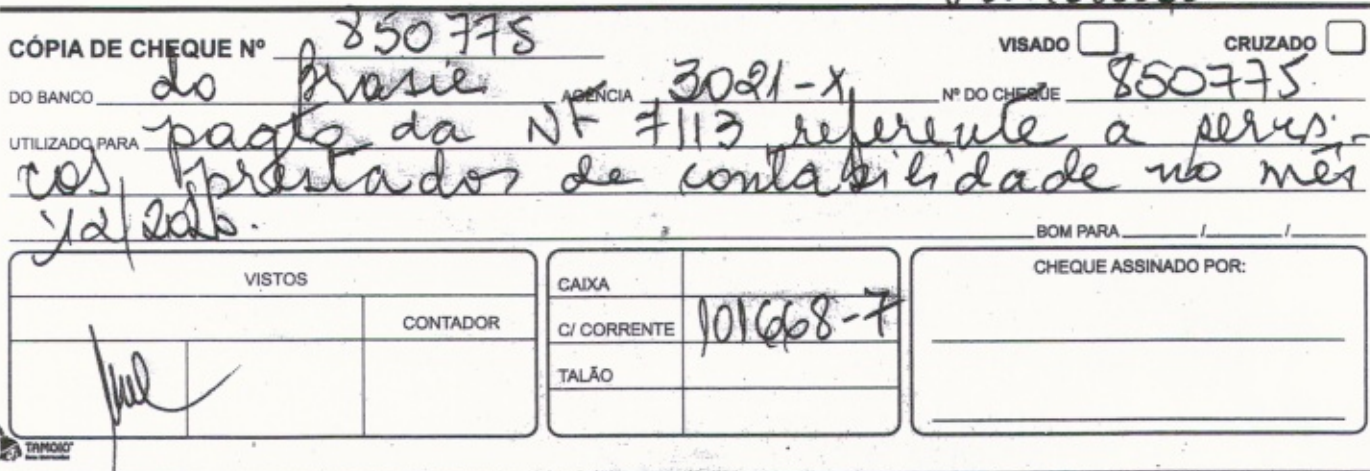 CÓPIA DE CHEQUE Nº 850775 VISADO CRUZADO
DO BANCO do Brasil AGÊNCIA 3021-X Nº DO CHEQUE 850775
UTILIZADO PARA pagto da NF 7113 referente a servi-
cos prestados de contabilidade no mês
12/2016.
BOM PARA / /
VISTOS
CONTADOR
CAIXA
C/ CORRENTE 101668-7
TALÃO
CHEQUE ASSINADO POR:
TAMOIO